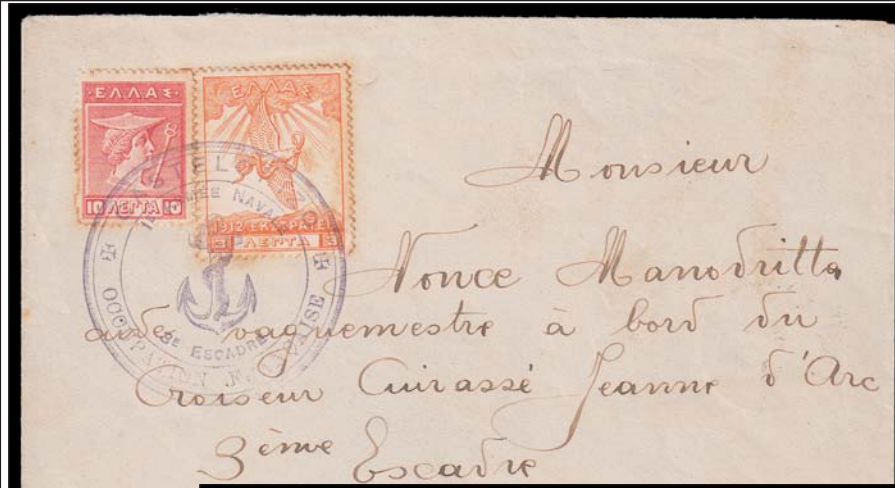 ΕΛΛΑΣ
10 ΛΕΠΤΑ 10
ΕΛΛΑΣ
1912 ΕΚΣΤΡΑΤΕΙΑ
3 ΛΕΠΤΑ 3
CASTELORIZO
1E ARMÉE NAVALE
3E ESCADRE
OCCUPATION FRANÇAISE
Monsieur
Nonce Manodritta
aide vaguemestre à bord du
Croiseur Cuirassé Jeanne d'Arc
3ème Escadre